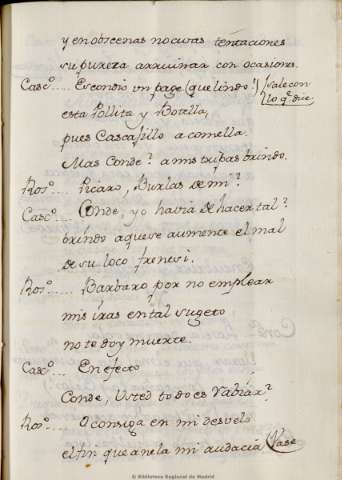 y en obscenas nocivas tentaciones
su pureza arruinar con ocasiones.
Casc.º..... Escondio un page (que lindo!) sale con
lo q.e dice
esta Pollita y Botella,
pues Cascafillo a comella.
Mas Conde? a mis tripas brindo.
Ros.º.... Picaro, Burlas de mi?
Casc.º.... Conde, yo havia de hacer tal?
brindo a que se aumente el mal
de su loco frenesi.
Ros.º...... Barbaro por no emplear
mis iras en tal sugeto
no te doy muerte.
Casc.º...... En efecto
Conde, Usted todo es rabiar?
Ros.º..... O consiga en mi desvelo
el fin que anela mi audacia Vase
© Biblioteca Regional de Madrid